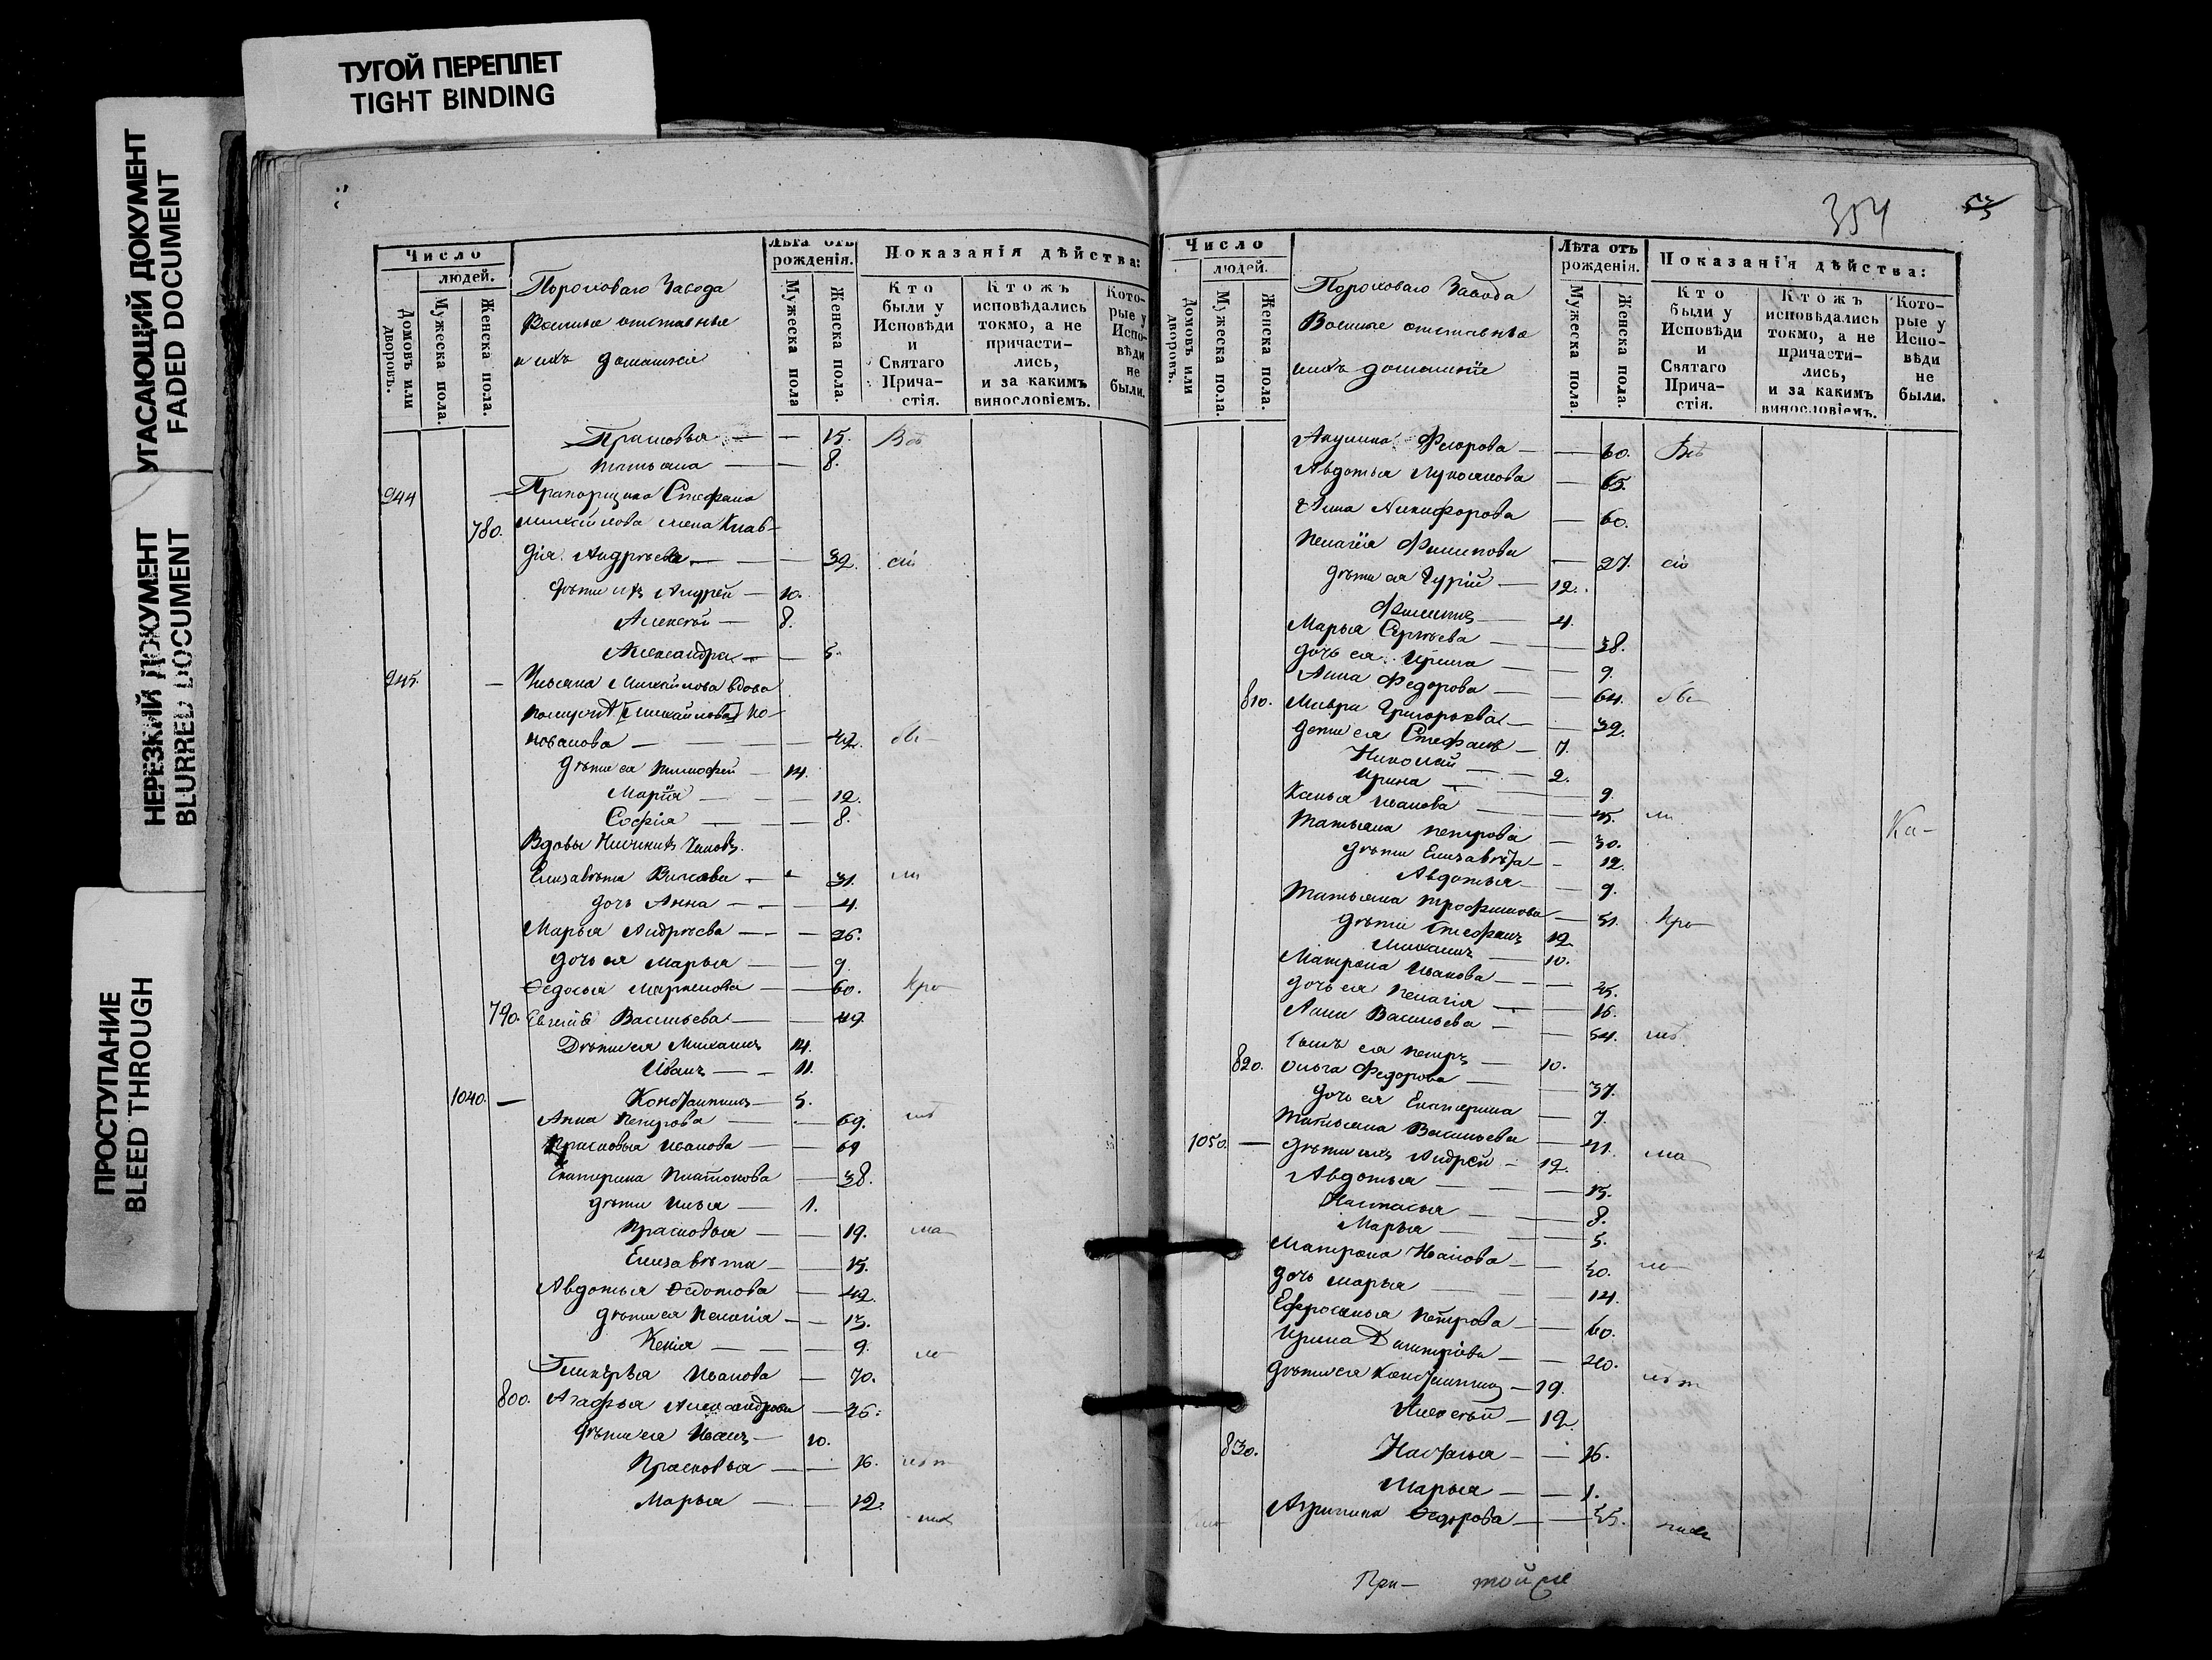 ТУГОЙ ПЕРЕПЛЕТ
TIGHT BINDING
УГАСАЮЩИЙ ДОКУМЕНТ
FADED DOCUMENT
НЕРЕЗКИЙ ДОКУМЕНТ
BLURRED DOCUMENT
ПРОСТУПАНИЕ
BLEED THROUGH
Число
людей.
Домовъ или дворовъ.
Мужеска пола
Женска пола.
Пороховаго Завода
Военные отставные
и ихъ домашніе
Лѣта отъ рожденія.
Мужеска пола
Женска пола.
Показанія дѣйства:
Кто были у Исповѣди и Святаго Прича-стія.
Кто жъ исповѣдались токмо, а не причасти-лись, и за какимъ винословіемъ.
Кото-рые у Испо-вѣди не были.
Прасковья — — 15. Всѣ
Татьяна — — 8.
944 — Прапорщика Стефана
780. жена Клав-
дія Андреева — — 32. сіи
дѣти ихъ Андрей — 10.
Алексѣй — 8.
Александра — — 5.
945. — Ульяна Михайлова вдова
42.
дѣти ея Тимофей — 14.
Марія — — 12.
София — — 8.
Вдовы Нижнихъ Чиновъ.
Елизавета — — 31.
дочь Анна — — 4.
Марья Андреева — — 26.
дочь ея Марья — — 9
Ѳедосья — — 60. Кро
790. Евгенія Васильева — — 49.
Дѣти ея Михаилъ 14.
Иванъ — 11.
1040. — Константинъ — 5.
Анна Петрова — — 69.
Прасковья Иванова — — 69
Екатерина Платонова — 38.
дѣти Илья — 1.
Прасковья — — 19. ма
Елизавѣта — — 15.
Авдотья Ѳедотова — 42.
дѣти ея Пелагія — — 13.
Ксенія — — 9.
Гликерья Иванова — 70.
800. Агафья Александрова — 36.
дѣти ея Иванъ — 10.
Прасковья — — 16.
Марья — — 12.
354
53
Число
людей.
Домовъ или дворовъ.
Мужеска пола.
Женска пола.
Пороховаго Завода
Военные отставные
ихъ домашніе
Лѣта отъ рожденія.
Мужеска пола.
Женска пола.
Показанія дѣйства:
Кто были у Исповѣди и Святаго Прича-стія.
Кто жъ исповѣдались токмо, а не причасти-лись, и за какимъ винословіемъ.
Кото-рые у Испо-вѣди не были.
Акулина Федорова — — 60. Всѣ
Авдотья Лукоянова — 65.
Анна Никифорова — 60.
Пелагія Филипова — 27. сіи
дѣти ея Гурій — 12.
Филиппъ — 4.
Марья Сергѣева — — 38.
дочь ея Ирина — — 9.
Анна Федорова — — 64.
810. Григорьева — — 32.
дети ея Стефанъ — 7.
Николай — — 2.
Ирина — — 9.
Ксенья Иванова — — 45.
Ка-
Татьяна Петрова — 30.
дѣти Елизавета — — 12.
Авдотья — — 9.
Татьяна Трофимова — 51. Кро
дѣти Стефанъ 12
Михаилъ — 10.
Матрона Иванова — —
дочь ея Пелагія — — 16.
Анна Васильева — — 54.
сынъ ея Петръ — 10.
820. Ольга Федорова — — 37.
дочь ея Екатерина — 7.
Татьяна Васильева — 41. ма
1050. — дѣти ихъ Андрей — 12.
Авдотья — — 15.
Настасья — — 8.
Марья — — 5.
Матрона Иванова — — 50.
дочь Марья — — 14.
Ефросинья Петрова — — 60.
Ирина Димитріева — —
дѣти ея Константинъ — 19.
Алексѣй — 12
830. Настасья — — 16.
Марья — — 1.
Агрипина Ѳедорова — — 55.
При- той же